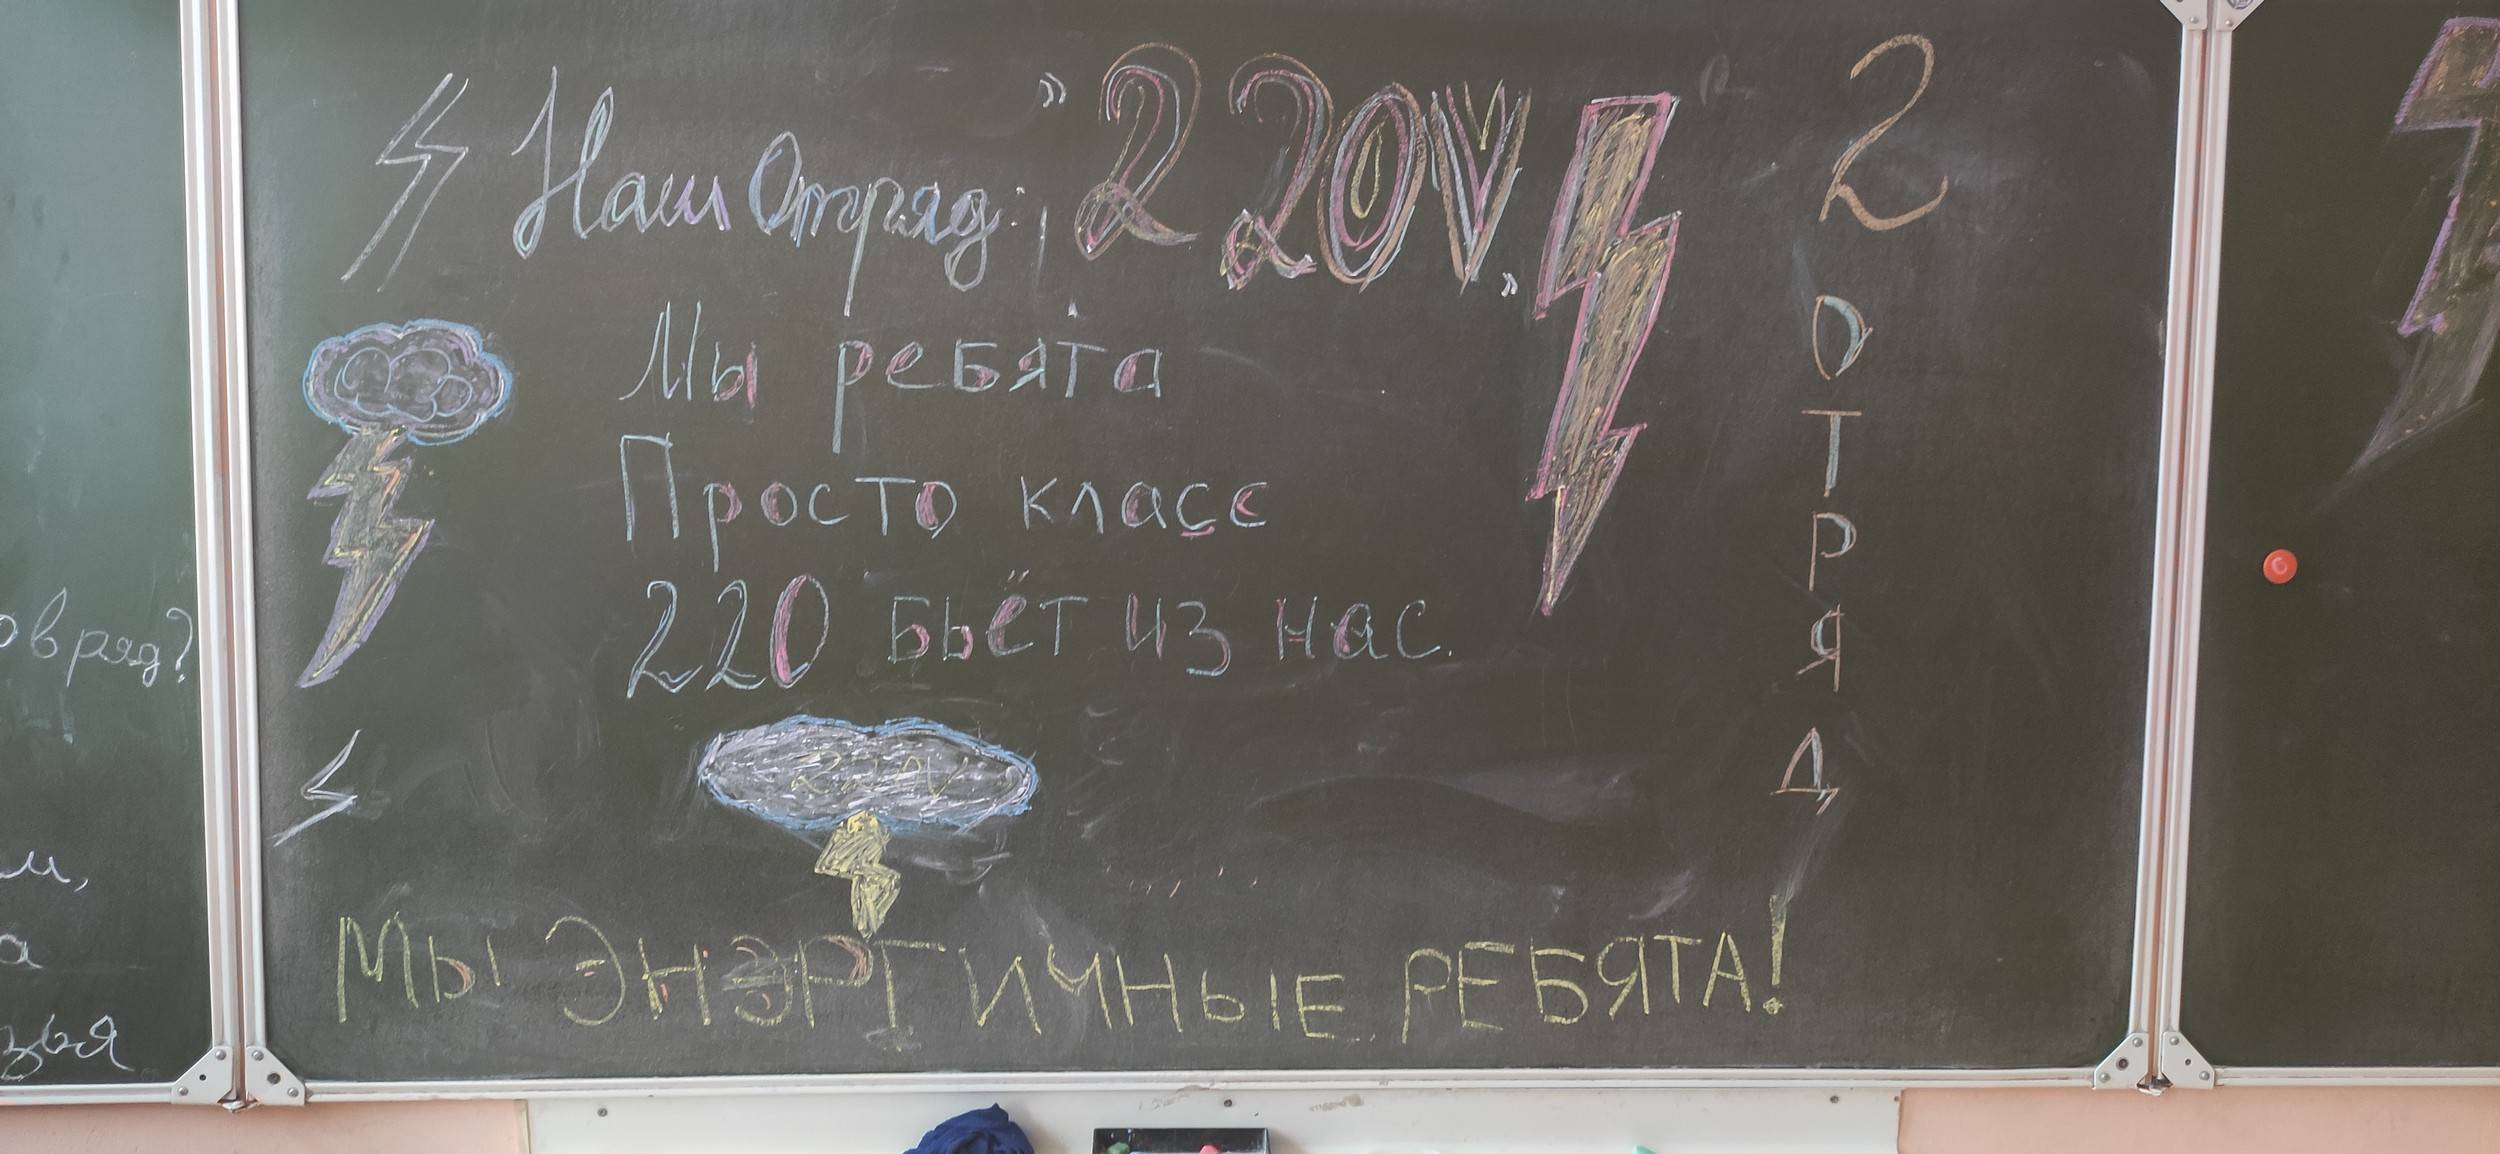 Наш Отряд: "220V"
Мы ребята
Просто класс
220 бьёт из нас.
220V
МЫ ЭНЭРГИЧНЫЕ РЕБЯТА!
2
О
Т
Р
Я
Д